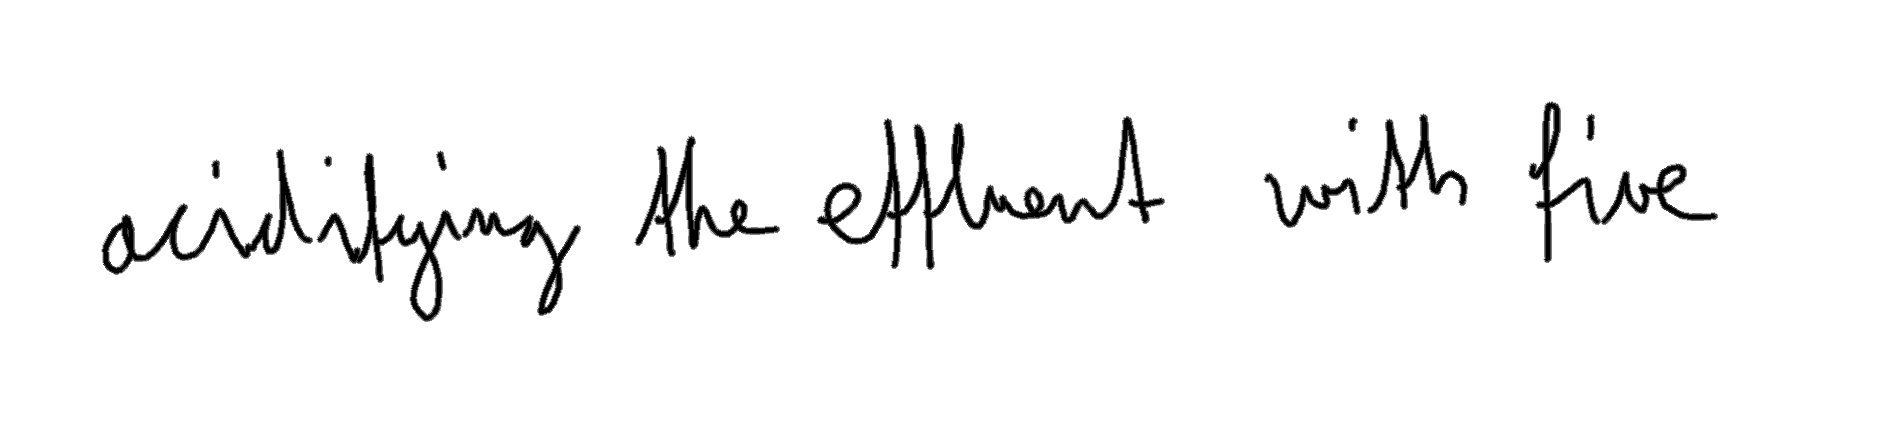 acidifying the effluent with five